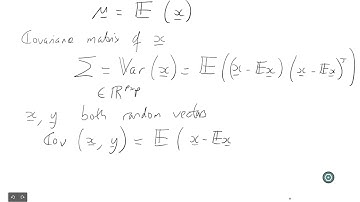 μ = 𝔼 (x)
Covariance matrix of x
Σ = Var (x) = 𝔼 ((x - 𝔼x) (x - 𝔼x)ᵀ)
∈ ℝᵖˣᵖ
x, y both random vectors
Cov (x, y) = 𝔼 ( x - 𝔼x